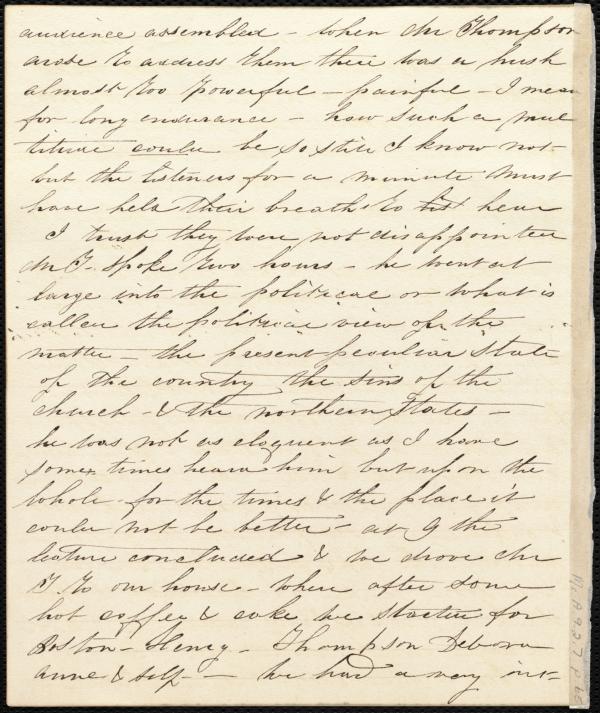 audience assembled - when Mr Thompson
arose to address them there was a hush
almost too powerful - painful - I mean
for long endurance - how such a mul
titude could be so still I know not -
but the listeners for a minute must
have held their breath to list hear
I trust they were not disappointed
Mr T. spoke two hours - he went at
large into the political or what is
called the political view of the
matter - the present peculiar state
of the country the sins of the
church - & the northern States -
he was not as eloquent as I have
some times heard him but upon the
whole - for the times & the place it
could not be better - at 9 the
lecture concluded & we drove Mr
T to our house - where after some
hot coffee & cake we started for
Boston - Henry - Thompson Debora
anne & self - - we had a very int-